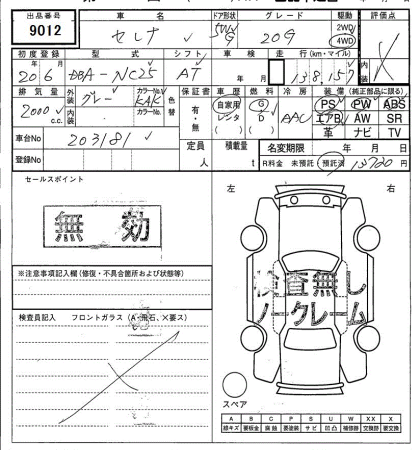 出品番号 車名 ドア形状 グレード 駆動 評価点
9012 セレナ 5W 20G 2WD 4WD X
初度登録 型式 シフト 車検 走行(km・マイル) 内装
20年6月 DBA-NC25 AT 年 月 138,157
排気量 外装 カラーNo. 色替 保証書 車歴 燃料 冷房 装備(純正部品に限る)
2000 c.c. グレー KAK 有・無 自家用 レンタ G D AAC PS PW ABS
内装 カラーNo. エアB AW SR
車台No. 203181 定員 積載量 革 ナビ TV
登録No. 人 t 名変期限 年 月 日
R料金 未預託 預託済
セールスポイント
無効
左 右
※注意事項記入欄(修復・不具合箇所および状態等)
検査無し
ノークレーム
検査員記入 フロントガラス(A・飛石、X要ス)
スペア
A B C P S U W X XX
線キズ 要板金 腐蝕 要塗装 サビ 凹凸 補修跡 交換跡 要交換